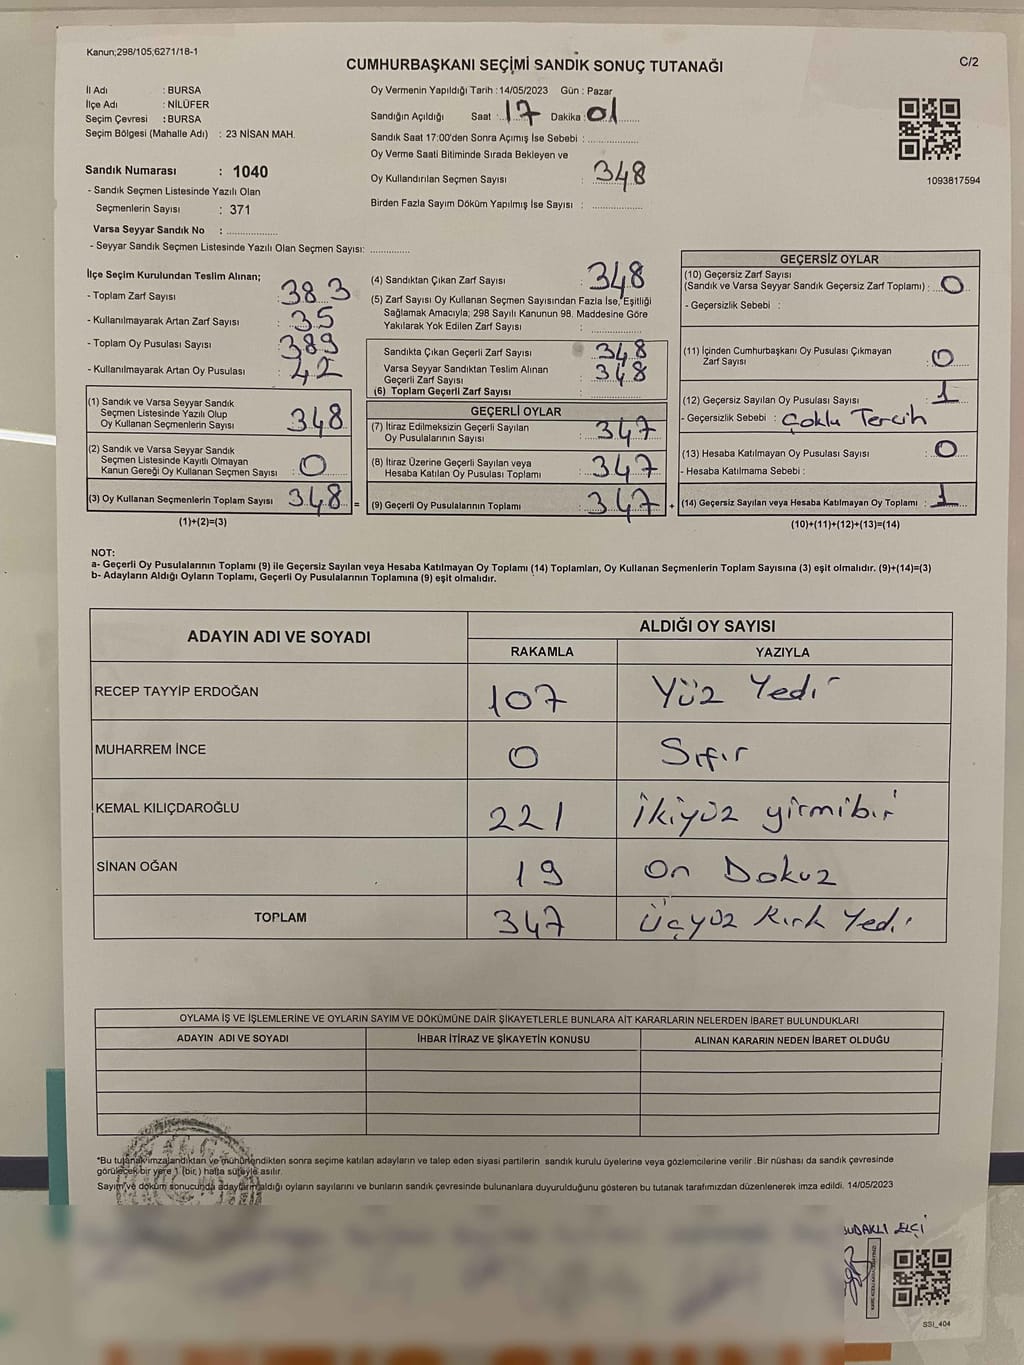 Kanun;298/105,6271/18-1
CUMHURBAŞKANI SEÇİMİ SANDIK SONUÇ TUTANAĞI
C/2
İl Adı : BURSA
İlçe Adı : NİLÜFER
Seçim Çevresi : BURSA
Seçim Bölgesi (Mahalle Adı) : 23 NİSAN MAH.
Sandık Numarası : 1040
- Sandık Seçmen Listesinde Yazılı Olan
Seçmenlerin Sayısı : 371
Varsa Seyyar Sandık No : ..................
- Seyyar Sandık Seçmen Listesinde Yazılı Olan Seçmen Sayısı: ..............
Oy Vermenin Yapıldığı Tarih : 14/05/2023 Gün : Pazar
Sandığın Açıldığı Saat : 17 Dakika : 01
Sandık Saat 17:00'den Sonra Açımış İse Sebebi : ..................
Oy Verme Saati Bitiminde Sırada Bekleyen ve
Oy Kullandırılan Seçmen Sayısı : 348
Birden Fazla Sayım Döküm Yapılmış İse Sayısı : ..................
1093817594
İlçe Seçim Kurulundan Teslim Alınan;
- Toplam Zarf Sayısı : 383
- Kullanılmayarak Artan Zarf Sayısı : 35
- Toplam Oy Pusulası Sayısı : 389
- Kullanılmayarak Artan Oy Pusulası : 42
(1) Sandık ve Varsa Seyyar Sandık
Seçmen Listesinde Yazılı Olup
Oy Kullanan Seçmenlerin Sayısı : 348
(2) Sandık ve Varsa Seyyar Sandık
Seçmen Listesinde Kayıtlı Olmayan
Kanun Gereği Oy Kullanan Seçmen Sayısı : 0
(3) Oy Kullanan Seçmenlerin Toplam Sayısı 348 =
(1)+(2)=(3)
(4) Sandıktan Çıkan Zarf Sayısı : 348
(5) Zarf Sayısı Oy Kullanan Seçmen Sayısından Fazla İse, Eşitliği
Sağlamak Amacıyla; 298 Sayılı Kanunun 98. Maddesine Göre
Yakılarak Yok Edilen Zarf Sayısı : ..................
Sandıkta Çıkan Geçerli Zarf Sayısı : 348
Varsa Seyyar Sandıktan Teslim Alınan
Geçerli Zarf Sayısı : 348
(6) Toplam Geçerli Zarf Sayısı :
GEÇERLİ OYLAR
(7) İtiraz Edilmeksizin Geçerli Sayılan
Oy Pusulalarının Sayısı : 347
(8) İtiraz Üzerine Geçerli Sayılan veya
Hesaba Katılan Oy Pusulası Toplamı : 347
(9) Geçerli Oy Pusulalarının Toplamı : 347 +
GEÇERSİZ OYLAR
(10) Geçersiz Zarf Sayısı
(Sandık ve Varsa Seyyar Sandık Geçersiz Zarf Toplamı) : 0
- Geçersizlik Sebebi :
(11) İçinden Cumhurbaşkanı Oy Pusulası Çıkmayan
Zarf Sayısı : 0
(12) Geçersiz Sayılan Oy Pusulası Sayısı : 1
- Geçersizlik Sebebi : Çoklu Tercih
(13) Hesaba Katılmayan Oy Pusulası Sayısı : 0
- Hesaba Katılmama Sebebi :
(14) Geçersiz Sayılan veya Hesaba Katılmayan Oy Toplamı : 1
(10)+(11)+(12)+(13)=(14)
NOT:
a- Geçerli Oy Pusulalarının Toplamı (9) ile Geçersiz Sayılan veya Hesaba Katılmayan Oy Toplamı (14) Toplamları, Oy Kullanan Seçmenlerin Toplam Sayısına (3) eşit olmalıdır. (9)+(14)=(3)
b- Adayların Aldığı Oyların Toplamı, Geçerli Oy Pusulalarının Toplamına (9) eşit olmalıdır.
ADAYIN ADI VE SOYADI
ALDIĞI OY SAYISI
RAKAMLA YAZIYLA
RECEP TAYYİP ERDOĞAN 107 Yüz Yedi
MUHARREM İNCE 0 Sıfır
KEMAL KILIÇDAROĞLU 221 İkiyüz yirmibir
SİNAN OĞAN 19 On Dokuz
TOPLAM 347 Üçyüz Kırk Yedi
OYLAMA İŞ VE İŞLEMLERİNE VE OYLARIN SAYIM VE DÖKÜMÜNE DAİR ŞİKAYETLERLE BUNLARA AİT KARARLARIN NELERDEN İBARET BULUNDUKLARI
ADAYIN ADI VE SOYADI İHBAR İTİRAZ VE ŞİKAYETİN KONUSU ALINAN KARARIN NEDEN İBARET OLDUĞU
*Bu tutanak imzalandıktan ve mühürlendikten sonra seçime katılan adayların ve talep eden siyasi partilerin sandık kurulu üyelerine veya gözlemcilerine verilir .Bir nüshası da sandık çevresinde
görülecek bir yere 1 (bir) hafta süreyle asılır.
Sayım ve döküm sonucunda adayların aldığı oyların sayılarını ve bunların sandık çevresinde bulunanlara duyurulduğunu gösteren bu tutanak tarafımızdan düzenlenerek imza edildi. 14/05/2023
BUDAKLI ELÇİ
SSI_404